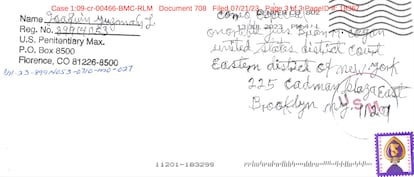 Case 1:09-cr-00466-BMC-RLM Document 708 Filed 07/21/23 Page 3 of 3 PageID #: 18367
Name: Joaquin Guzman L.
Reg. No. 89914053
U.S. Penitentiary Max.
P.O. Box 8500
Florence, CO 81226-8500
como especial
onorable jues Brian M. cogan
united states district court
Eastern district of new york
225 cadman plaza East
Brooklyn n.y. 11201
USM
11201-183299